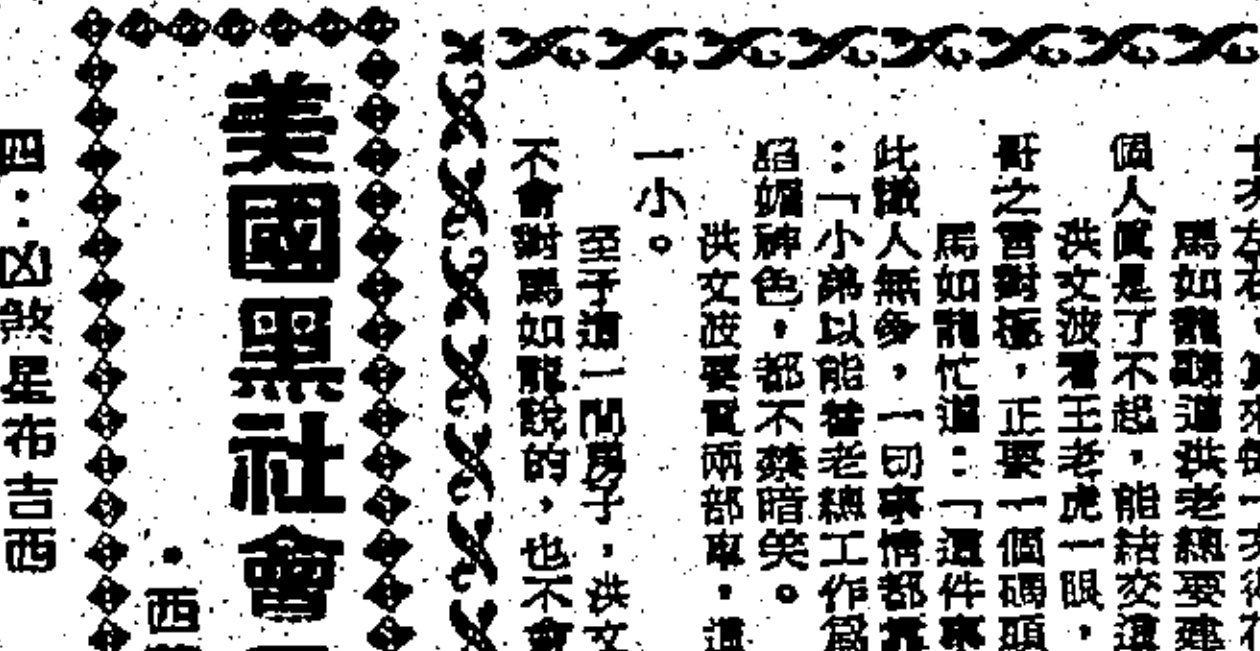 馬如龍聽道洪老總要建
個人真是了不起,能結交這
洪文波看王老虎一眼,
哥之言對極,正要一個碼頭
馬如龍忙道:「這件事
此識人無多,一切事情都靠
:「小弟以能替老總工作為
諂媚神色,都不禁暗笑。
洪文波要買兩部車,這
一小。
至于這一間房子,洪文
不會對馬如龍說的,也不會
美國黑社會
·西
四:凶煞星布吉西